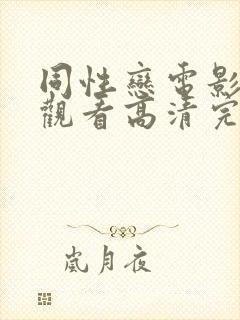 同性戀電影
觀看高清完
嵐月夜